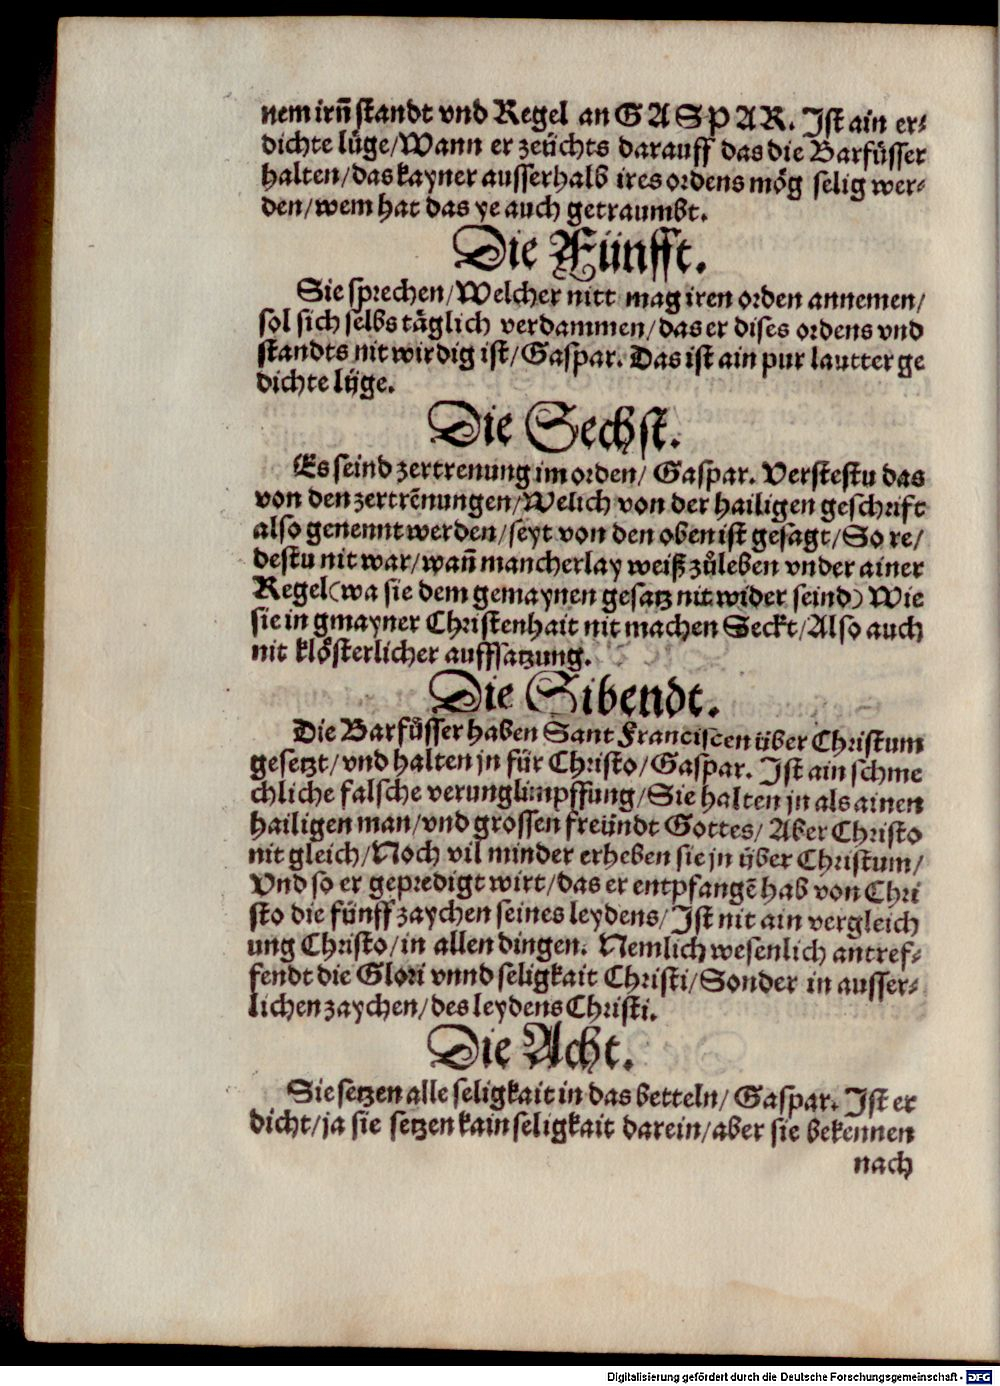 nem irn̄ standt vnd Regel an GASPAR. Ist ain er⸗
dichte lüge/Wann er zeüchts darauff das die Barfüsser
halten/das kayner ausserhalb ires ordens mög selig wer⸗
den/wem hat das ye auch getraumbt.
Die Fünfft.
Sie sprechen/Welcher nitt mag iren orden annemen/
sol sich selbs täglich verdammen/das er dises ordens vnd
standts nit wirdig ist/Gaspar. Das ist ain pur lautter ge
dichte lüge.
Die Sechst.
Es seind zertrenung im orden/ Gaspar. Verstestu das
von den zertrēnungen/Welich von der hailigen geschrift
also genennt werden/seyt von den oben ist gesagt/So re/
destu nit war/wan̄ mancherlay weiß zůleben vnder ainer
Regel(wa sie dem gemaynen gesatz nit wider seind) Wie
sie in gmayner Christenhait nit machen Seckt/Also auch
nit klösterlicher auffsatzung.
Die Sibendt.
Die Barfüsser haben Sant Franciscen über Christum
gesetzt/vnd halten jn für Christo/Gaspar. Ist ain schme
chliche falsche verunglimpffung/Sie halten jn als ainen
hailigen man/vnd grossen freündt Gottes/ Aber Christo
nit gleich/Noch vil minder erheben sie jn über Christum/
Vnd so er gepredigt wirt/das er entpfangē hab von Chri
sto die fünff zaychen seines leydens/Ist nit ain vergleich
ung Christo/in allen dingen. Nemlich wesenlich antref⸗
fendt die Glori vnnd seligkait Christi/Sonder in ausser⸗
lichen zaychen/des leydens Christi.
Die Acht.
Sie setzen alle seligkait in das betteln/ Gaspar. Ist er
dicht/ja sie setzen kain seligkait darein/aber sie bekennen
nach
Digitalisierung gefördert durch die Deutsche Forschungsgemeinschaft - DFG